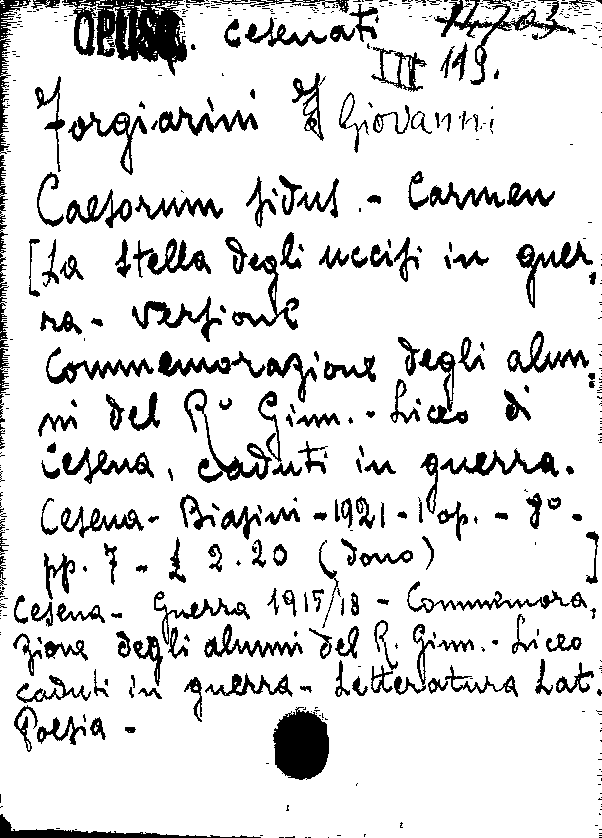 OPUSC. cesenati
III 119.
Forgiarini Giovanni
Caesorum sidus. - Carmen
[La stella degli uccisi in guer,
ra - versione
Commemorazione degli alun=
ni del R° Ginn. - Liceo di
Cesena, caduti in guerra.
Cesena - Biasini - 1921 - 1 op. - 8° -
pp. 7 - £ 2.20 (dono) ]
Cesena - Guerra 1915/18 - Commemora,
zione degli alunni del R. Ginn. - Liceo
caduti in guerra - Letteratura Lat.
Poesia -